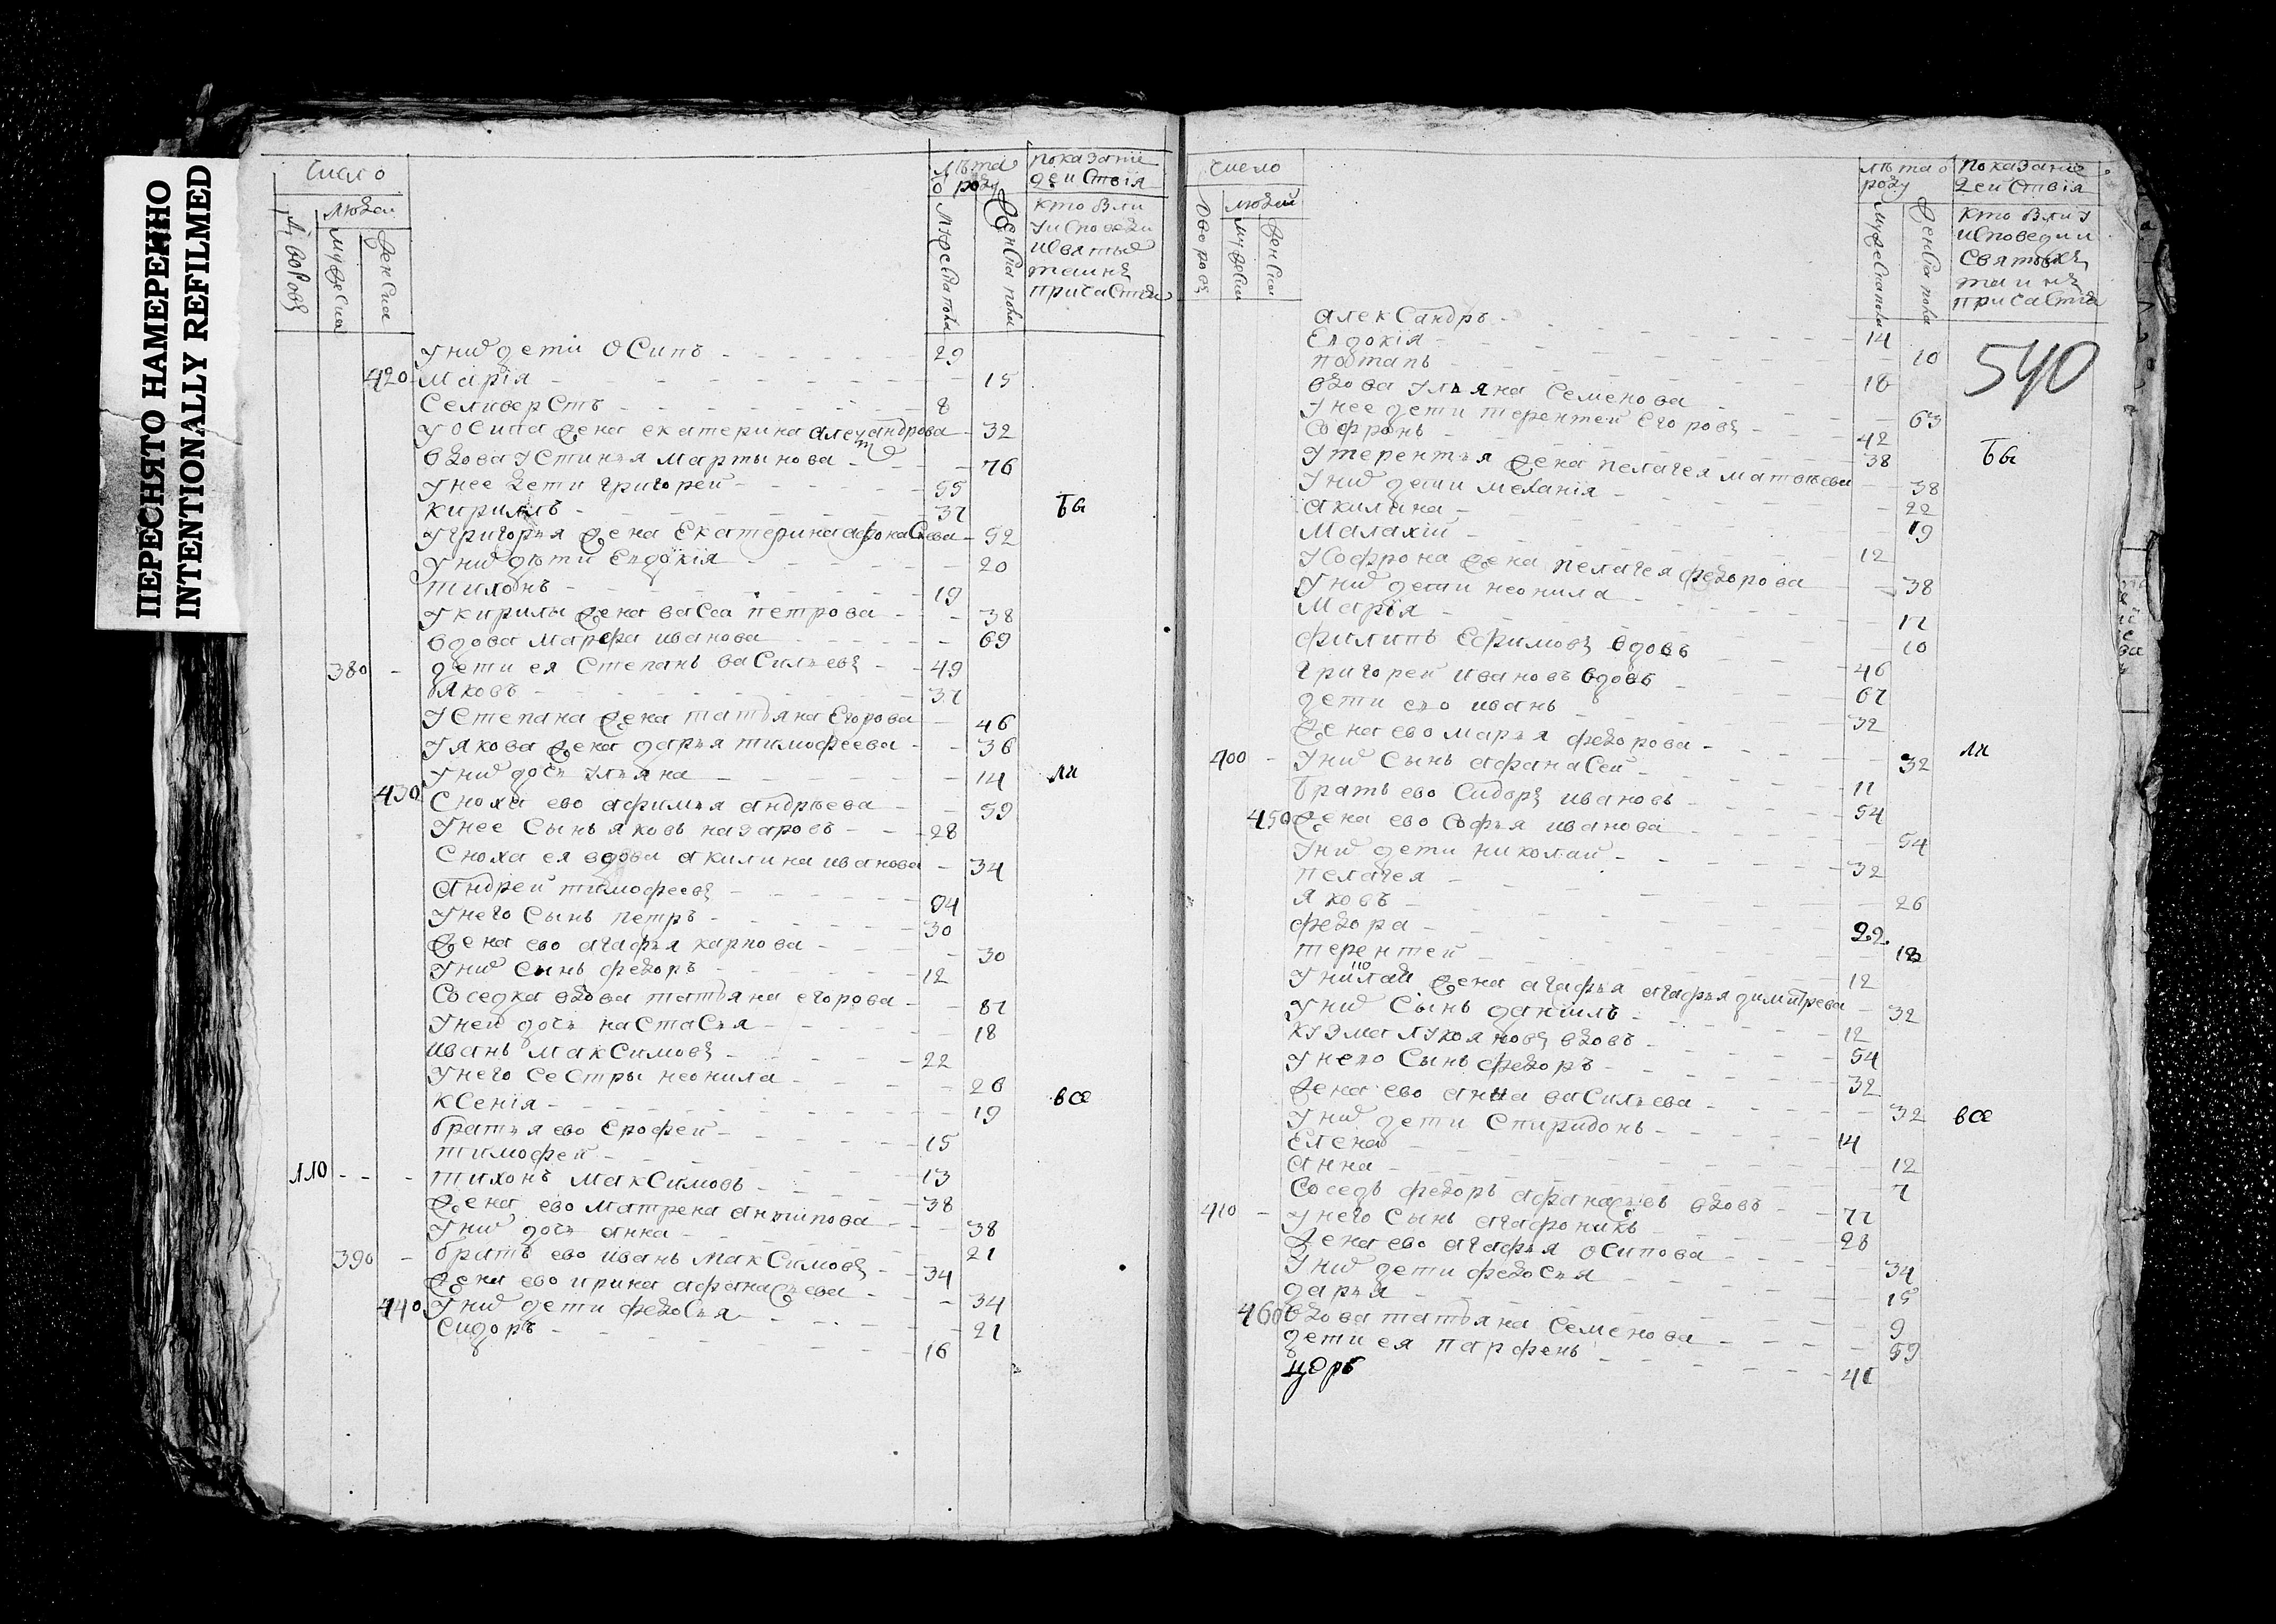 ПЕРЕСНЯТО НАМЕРЕННО
INTENTIONALLY REFILMED
Число
Дворовъ
людей
мужеска
женска
лѣта о роду
Мужеска пола
Женска пола
показанiе
действiя
кто были
у исповеди
и святыхъ
таинъ
причастия
у них дети осипъ 29
420 марiя 15
селиверстъ 8
у осипа жена екатерина александрова 32
вдова устинья мартынова 76
у нее дети григорей 55
кирилъ 37 бы
у григорья жена екатерина афонасева 52
у них дѣти евдокiя 20
тихонъ 19
у кирилы жена васса петрова 38
вдова марфа иванова 69
380 дети ея степанъ васильевъ 49
яковъ 37
у степана жена татьяна егорова 46
у якова жена дарья тимофеева 36
у них дочь ульяна 14 ли
430 сноха ево афимья андрѣева 59
у нее сынъ яковъ назаровъ 28
сноха ея вдова акилина иванова 34
андрей тимофеевъ 54
у него сынъ петръ 30
жена ево агафья карпова 30
у них сынъ федоръ 12
соседка вдова татьяна егорова 87
у ней дочь настасья 18
иванъ максимовъ 22
у него сестры неонила 26
ксенiя 19 все
братья ево ерофей 15
тимофей 13
110 тихонъ максимовъ 38
жена ево матрена антипова 38
у них дочь анна 21
390 братъ ево иванъ максимовъ 34
жена ево ирина афанасьева 34
440 у них дети федосья 21
сидоръ 16
число
Дворовъ
людей
мужеска
женска
лѣта о
роду
мужеска пола
женска пола
показанiе
действiя
кто были у
исповеди и
святыхъ
таинъ
причастия
540
александръ 14
евдокiя 10
потапъ 18
вдова ульяна семенова 63
у нее дети терентей егоровъ 42
софронъ 38 бы
у терентья жена пелагея матвѣева 38
у них дети меланiя 22
акилина 19
малахiй 12
у софрона жена пелагея федорова 38
у них дети неонила 17
марiя 10
филипъ ефимовъ вдовъ 46
григорей ивановъ вдовъ 67
дети его иванъ 32
жена ево марья федорова 32 ли
400 у них сынъ афанасей 11
братъ ево сидоръ ивановъ 54
450 жена ево софья иванова 54
у них дети николай 32
пелагея 26
яковъ 22
федора 18
терентей 12
у николая жена агафья агафья димитрева 32
у них сынъ данiилъ 12
кузма лукояновъ вдовъ 54
у него сынъ федоръ 32
жена ево анна васильева 32 все
у них дети спиридонъ 14
елена 12
анна 7
соседъ федоръ афанасьевъ вдовъ 77
410 у него сынъ агафоникъ 28
жена ево агафья осипова 34
у них дети федосья 15
дарья 9
460 вдова татьяна семенова 59
дети ея парфенъ 41
церъ